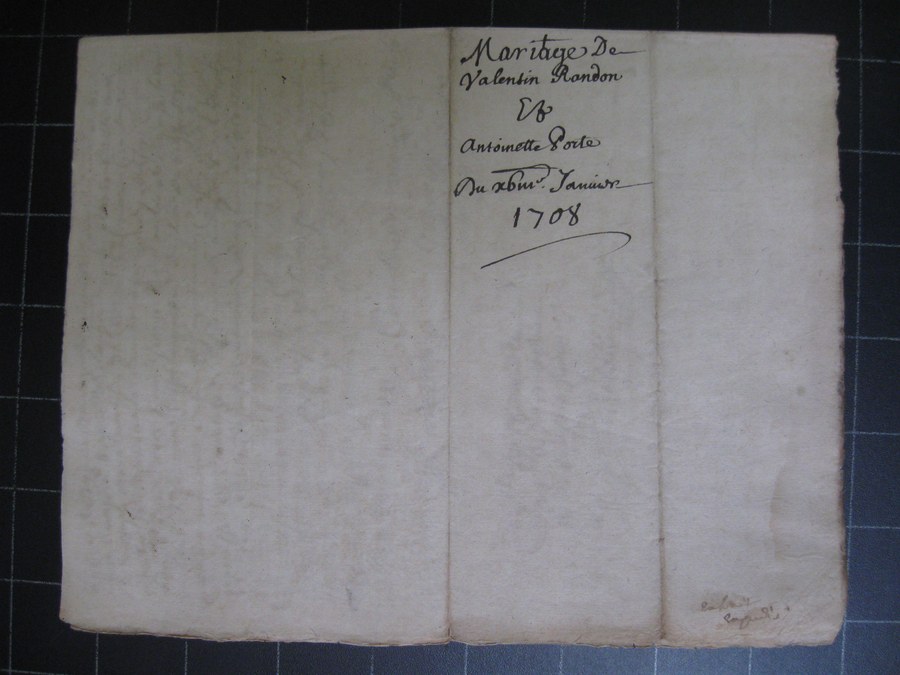 Mariage De
Valentin Randon
Et
Antoinette Porte
Du xbme. Janvier
1708